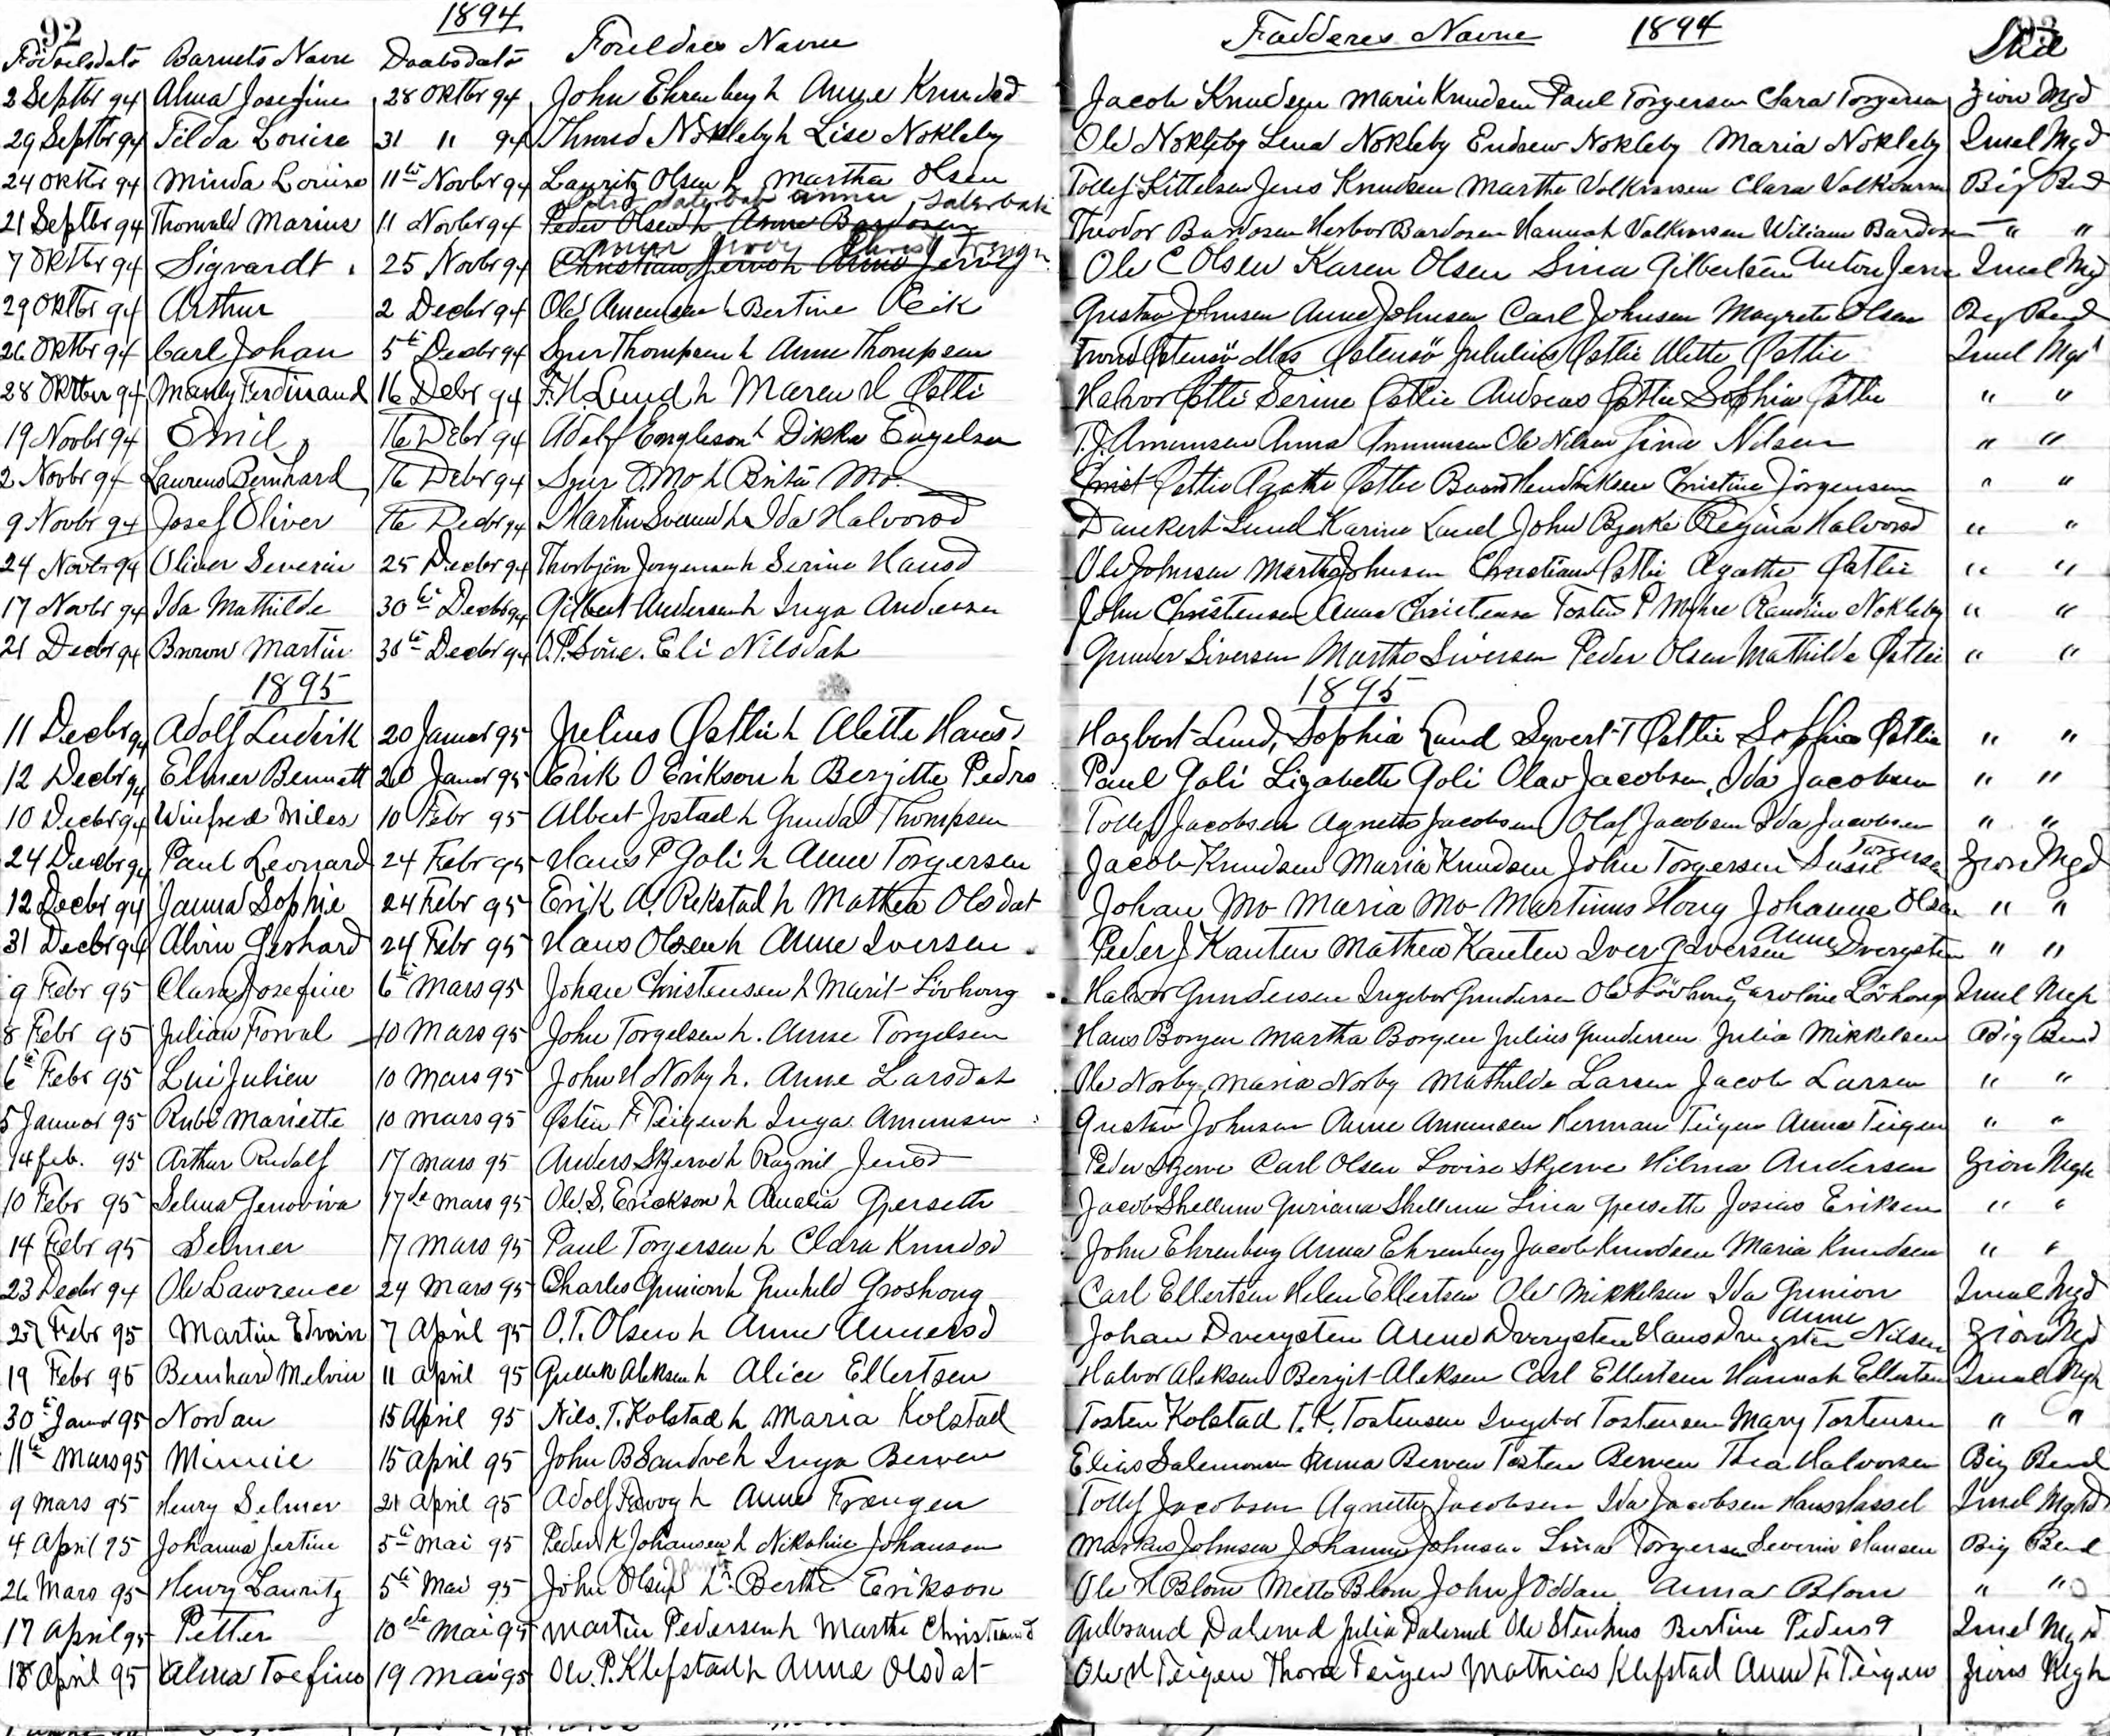 92
1894
Fødselsdato Barnets Navn Daabsdato Foreldres Navne
2 Septbr 94 Alma Josefine 28 Oktbr 94 John Ehrenberg h Anne Knudsd
29 Septbr 94 Tilda Louise 31 " 94 Nökleby h Lise Nokleby
24 Oktbr 94 Minda Louise 11te Novbr 94 Lauritz Olsen h Martha Olsen
21 Septbr 94 Thorvald Marius 11 Novbr 94 Peder Olsen h Anne Bardosen
7 Oktbr 94 Sigvardt 25 Novbr 94 Christian h Anne
29 Oktbr 94 Arthur 2 Decbr 94 Ole Amundsen h Bertine
26 Oktbr 94 Carl Johan 5te Decbr 94 Sjur Thompsen h Anne Thompsen
28 Oktbr 94 Manly Ferdinand 16 Debr 94 F. H. Lund h Maren H Østli
19 Novbr 94 Emil 16 Debr 94 Adolf Engleson h Dikka Engelsen
2 Novbr 94 Laurens Bernhard 16 Debr 94 Sjur O. Mo h Brita Mo.
9 Novbr 94 Josef Oliver 16 Decbr 94 Martin h Ida Halvorsd
24 Novbr 94 Oliver Severin 25 Decbr 94 Thorbjön Jorgensen h Serine Hansd
17 Novbr 94 Ida Mathilde 30te Decbr 94 Gilbert Andersen h Inga Andersen
21 Decbr 94 Martin 30te Decbr 94 O. P. Eli Nilsdat
1895
11 Decbr 94 Adolf Ludvik 20 Januar 95 Julius Østli h Alette Hansd
12 Decbr 94 Elmer Bennett 20 Januar 95 Erik O Erikson h Bergitte Pedrs
10 Decbr 94 Winfred Miles 10 Febr 95 Albert Jostad h Gunda Thompsen
24 Decbr 94 Paul Leonard 24 Febr 95 Hans P Goli h Anne Torgersen
12 Decbr 94 Janna Sophie 24 Febr 95 Erik A. Rekstad h Mathea Olsdat
31 Decbr 94 Alvin Gerhard 24 Febr 95 Hans Olsen h Anne Iversen
9 Febr 95 Clara Josefine 6te Mars 95 Johan Christensen h Marit Lövhoug
8 Febr 95 Julian Forval 10 Mars 95 John Torgelsen h. Anne Torgelsen
6te Febr 95 Lui Julien 10 Mars 95 John H Norby h. Anne Larsdat
5 Januar 95 Rubi Mariette 10 Mars 95 Østen F Teigen h Inga Amunsen
14 feb. 95 Arthur Rudolf 17 Mars 95 Anders Skjerve h Ragnil Jensd
10 Febr 95 Selma Genoviva 17de Mars 95 Ole. S. Erickson h Amalia
14 Febr 95 Selmer 17 Mars 95 Paul Torgersen h Clara Knudsd
23 Decbr 94 Ole Lawrence 24 Mars 95 Charles Gunion h Gunhild Groshong
25 Febr 95 Martin Edvin 7 April 95 O. T. Olsen h Anne
19 Febr 95 Bernhard Melvin 11 April 95 Gullik Aleksen h Alice Ellertsen
30te Januar 95 Nordan 15 April 95 Nils. T. Kolstad h Maria Kolstad
11te Mars 95 Minnie 15 April 95 John B Sandve h Inga Berven
9 Mars 95 Henry Selmer 21 April 95 Adolf h Anne Frængen
4 April 95 Johanna Jertine 5te Mai 95 Peder K Johansen h Nikoline Johansen
26 Mars 95 Henry Lauritz 5te Mai 95 John Olsen h Berthe Erikson
17 April 95 Petter 10de Mai 95 Martin Pedersen h Marthe
18 April 95 Alma 19 Mai 95 Ole. P. Klefstad h Anne Olsdat
Fadderes Navne 1894 93
Sted
Jacob Knudsen Marie Knudsen Paul Torgersen Clara Torgersen Zion Mgd
Ole Nokleby Lena Nokleby Endrew Nokleby Maria Nokleby Imel Mgd
Tollef Kittelsen Jens Knudsen Marthe Volkvorsen Clara Volkvorsen Big Bend
Theodor Bardosen Bardosen Hannah Volkvorsen Wiliam Bardosen " "
Ole C Olsen Karen Olsen Sina Gilbertsen Anton Imel Mg
Gustav Johnsen Anne Johnsen Carl Johnsen Magrete Olsen Big Bend
Østensö Mrs Østensö Julius Østlie Alette Østlie Imel Mgd
Halvor Østli Serine Østlie Andreas Østlie Sophia Østlie " "
T. J. Amunsen Anna Amunsen Ole Nilsen Sina Nilsen " "
Christ Østlie Agathe Østlie Hendriksen Christine Jörgensen " "
Dankert Lund Karine Lund John Bjerke Regina Halvorsd " "
Ole Johnsen Martha Johnsen Christian Østlie Agathe Østlie " "
John Christensen Anna Christensen Tosten P Myhre Randine Nokleby " "
Gunder Siversen Marthe Siversen Peder Olsen Mathilde Østlie " "
1895
Hagbart Lund, Sophia Lund Syvert T Østlie Sophia Østlie " "
Paul Goli Lizabette Goli Olav Jacobsen, Ida Jacobsen " "
Tollef Jacobsen Agnette Jacobsen Olaf Jacobsen Ida Jacobsen " "
Jacob Knudsen Maria Knudsen John Torgersen Susie Torgersen Zion Mgd
Johan Mo Maria Mo Martinus Houg Johanne Olsen " "
Peder J Kanten Mathea Kanten Iver Iversen Anne " "
Halvor Gundersen Ingebor Gundersen Ole Lövhoug Caroline Lövhoug Imel Mgh
Hans Borgen Martha Borgen Julius Gundersen Julia Mikkelsen Big Bend
Ole Norby, Maria Norby Mathilde Larsen Jacob Larsen " "
Gustav Johnsen Anne Amunsen Herman Teigen Anna Teigen " "
Peder Skjerve Carl Olsen Lovise Skjerve Hilma Andersen Zion Mgh
Jacob Shellum Shellum Lina Josias Eriksen " "
John Ehrenberg Anna Ehrenberg Jacob Knudsen Maria Knudsen " "
Carl Ellertsen Helen Ellertsen Ole Mikkelsen Ida Gunion Imel Mgd
Johan Dvergsten Anne Dvergsten Hans Dvergsten Anne Nilsen Zion Mgd
Halvor Aleksen Bergit Aleksen Carl Ellertsen Hannah Ellertsen Imel Mgh
Tosten Kolstad T. K. Tostensen Ingebor Tostensen Mary Tostensen " "
Elias Salemonsen Anna Berven Tosten Berven Thea Halvorsen Big Bend
Tollef Jacobsen Agnette Jacobsen Ida Jacobsen Hans Hassel Imel Mghd
Markus Johnsen Johanne Johnsen Lina Torgersen Severin Hansen Big Bend
Ole H Blom Mette Blom John J Oddan Anna Blom " "
Gulbrand Dalerud Julia Dalerud Ole Stenhus Bertine Pedersd Imel Mghd
Ole H Teigen Thora Teigen Mathias Klefstad Anne F Teigen Zions Mgh